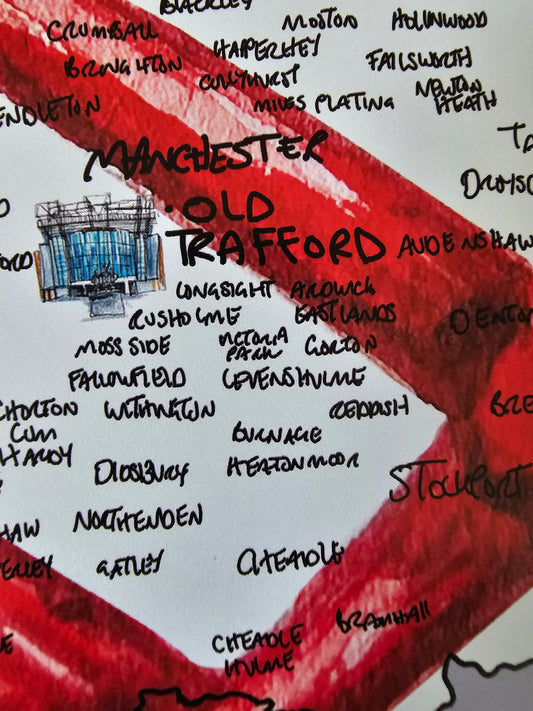 BLACKLEY
CRUMPALL
MOSTON
HOLLINWOOD
HARPERHEY
BROUGHTON
FAILSWORTH
COLLYHURST
NEWTON
HEATH
MILES PLATING
ENDLETON
MANCHESTER
DROYSC
·OLD
TRAFFORD
AUDENSHAW
ORD
LONGSIGHT ARDWICK
RUSHOLME
EASTLANDS
DENTON
MOSS SIDE
VICTORIA
PARK
GORTON
FALLOWFIELD
LEVENSHULME
CHORLTON
CUM
HARDY
WITHINGTON
REDDISH
BRE
BURNAGE
DIDSBURY
HEATON MOOR
STOCKPORT
HAW
NORTHENDEN
ERLEY
GATLEY
CHEADLE
BRAMHAll
CHEADLE
HULME